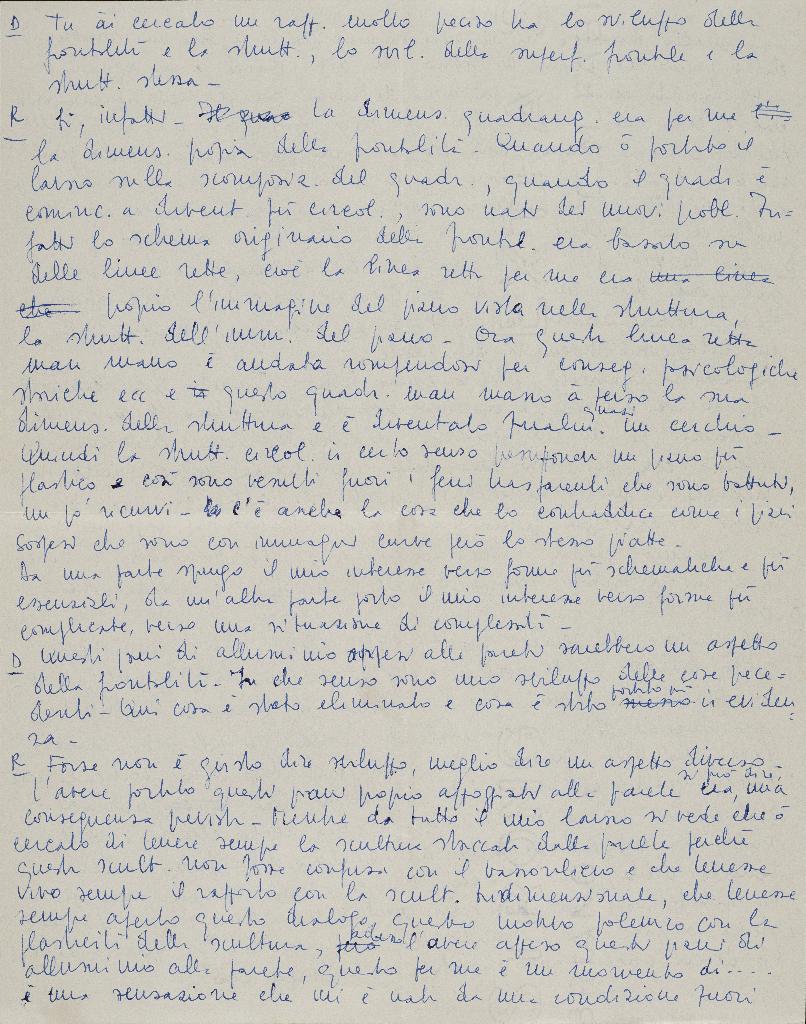 D Tu ài cercato un rapp. molto preciso tra lo sviluppo della
frontalità e la strutt., lo svil. della superf. frontale e la
strutt. stessa -
R Sì, infatti - la dimens. quadrang. era per me
la dimens. propria della frontalità. Quando ò portato il
lavoro sulla scomposiz. del quadr., quando il quadr. è
cominc. a divent. più circol., sono nati dei nuovi probl. In-
fatti lo schema originario della frontal. era basato su
delle linee rette, cioè la linea retta per me era una linea
che proprio l'immagine del piano vista nella struttura,
la strutt. dell'imm. del piano - Ora questa linea retta
man mano è andata rompendosi per conseg. psicologiche
storiche ecc e questo quadr. man mano à perso la sua
dimens. della struttura e è diventato quasi un cerchio -
Quindi la strutt. circol. in certo senso un piano più
plastico e così sono venuti fuori i ferri trasparenti che sono battuti,
un pò ricurvi - c'è anche la cosa che lo contraddice come i piani
sospesi che sono con immagini curve però lo stesso piatte -
Da una parte spingo il mio interesse verso forme più schematiche e più
essenziali, da un'altra parte porto il mio interesse verso forme più
complicate, verso una situazione di complessità -
D Questi piani di alluminio appesi alle pareti sarebbero un aspetto
della frontalità - In che senso sono uno sviluppo delle cose prece-
denti - Qui cosa è stato eliminato e cosa è stato portato più messo in eviden-
za -
R Forse non è giusto dire sviluppo, meglio dire un aspetto diverso -
L'avere portato questi piani proprio appoggiati alla parete si può dire, una
conseguenza - Mentre da tutto il mio lavoro si vede che ò
cercato di tenere sempre la scultura staccata dalla parete perché
questa scult. non fosse confusa con il bassorilievo e che tenesse
vivo sempre il rapporto con la scult. tridimensionale, che tenesse
sempre aperto questo dialogo, questo motivo polemico con la
plasticità della scultura, l'avere appeso questi piani di
alluminio alla parete, questo per me è un momento di ....
è una sensazione che mi è nata da una condizione fuori